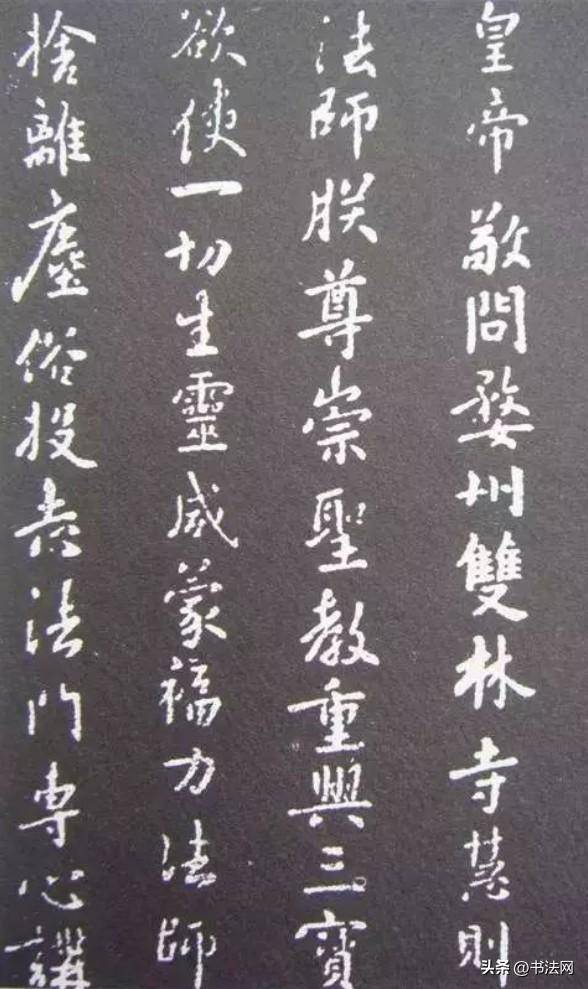 皇帝敬問婺州雙林寺慧則
法師朕尊崇聖教重興三寶
欲使一切生靈咸蒙福力法師
捨離塵俗投志法門專心講
头条 @书法网